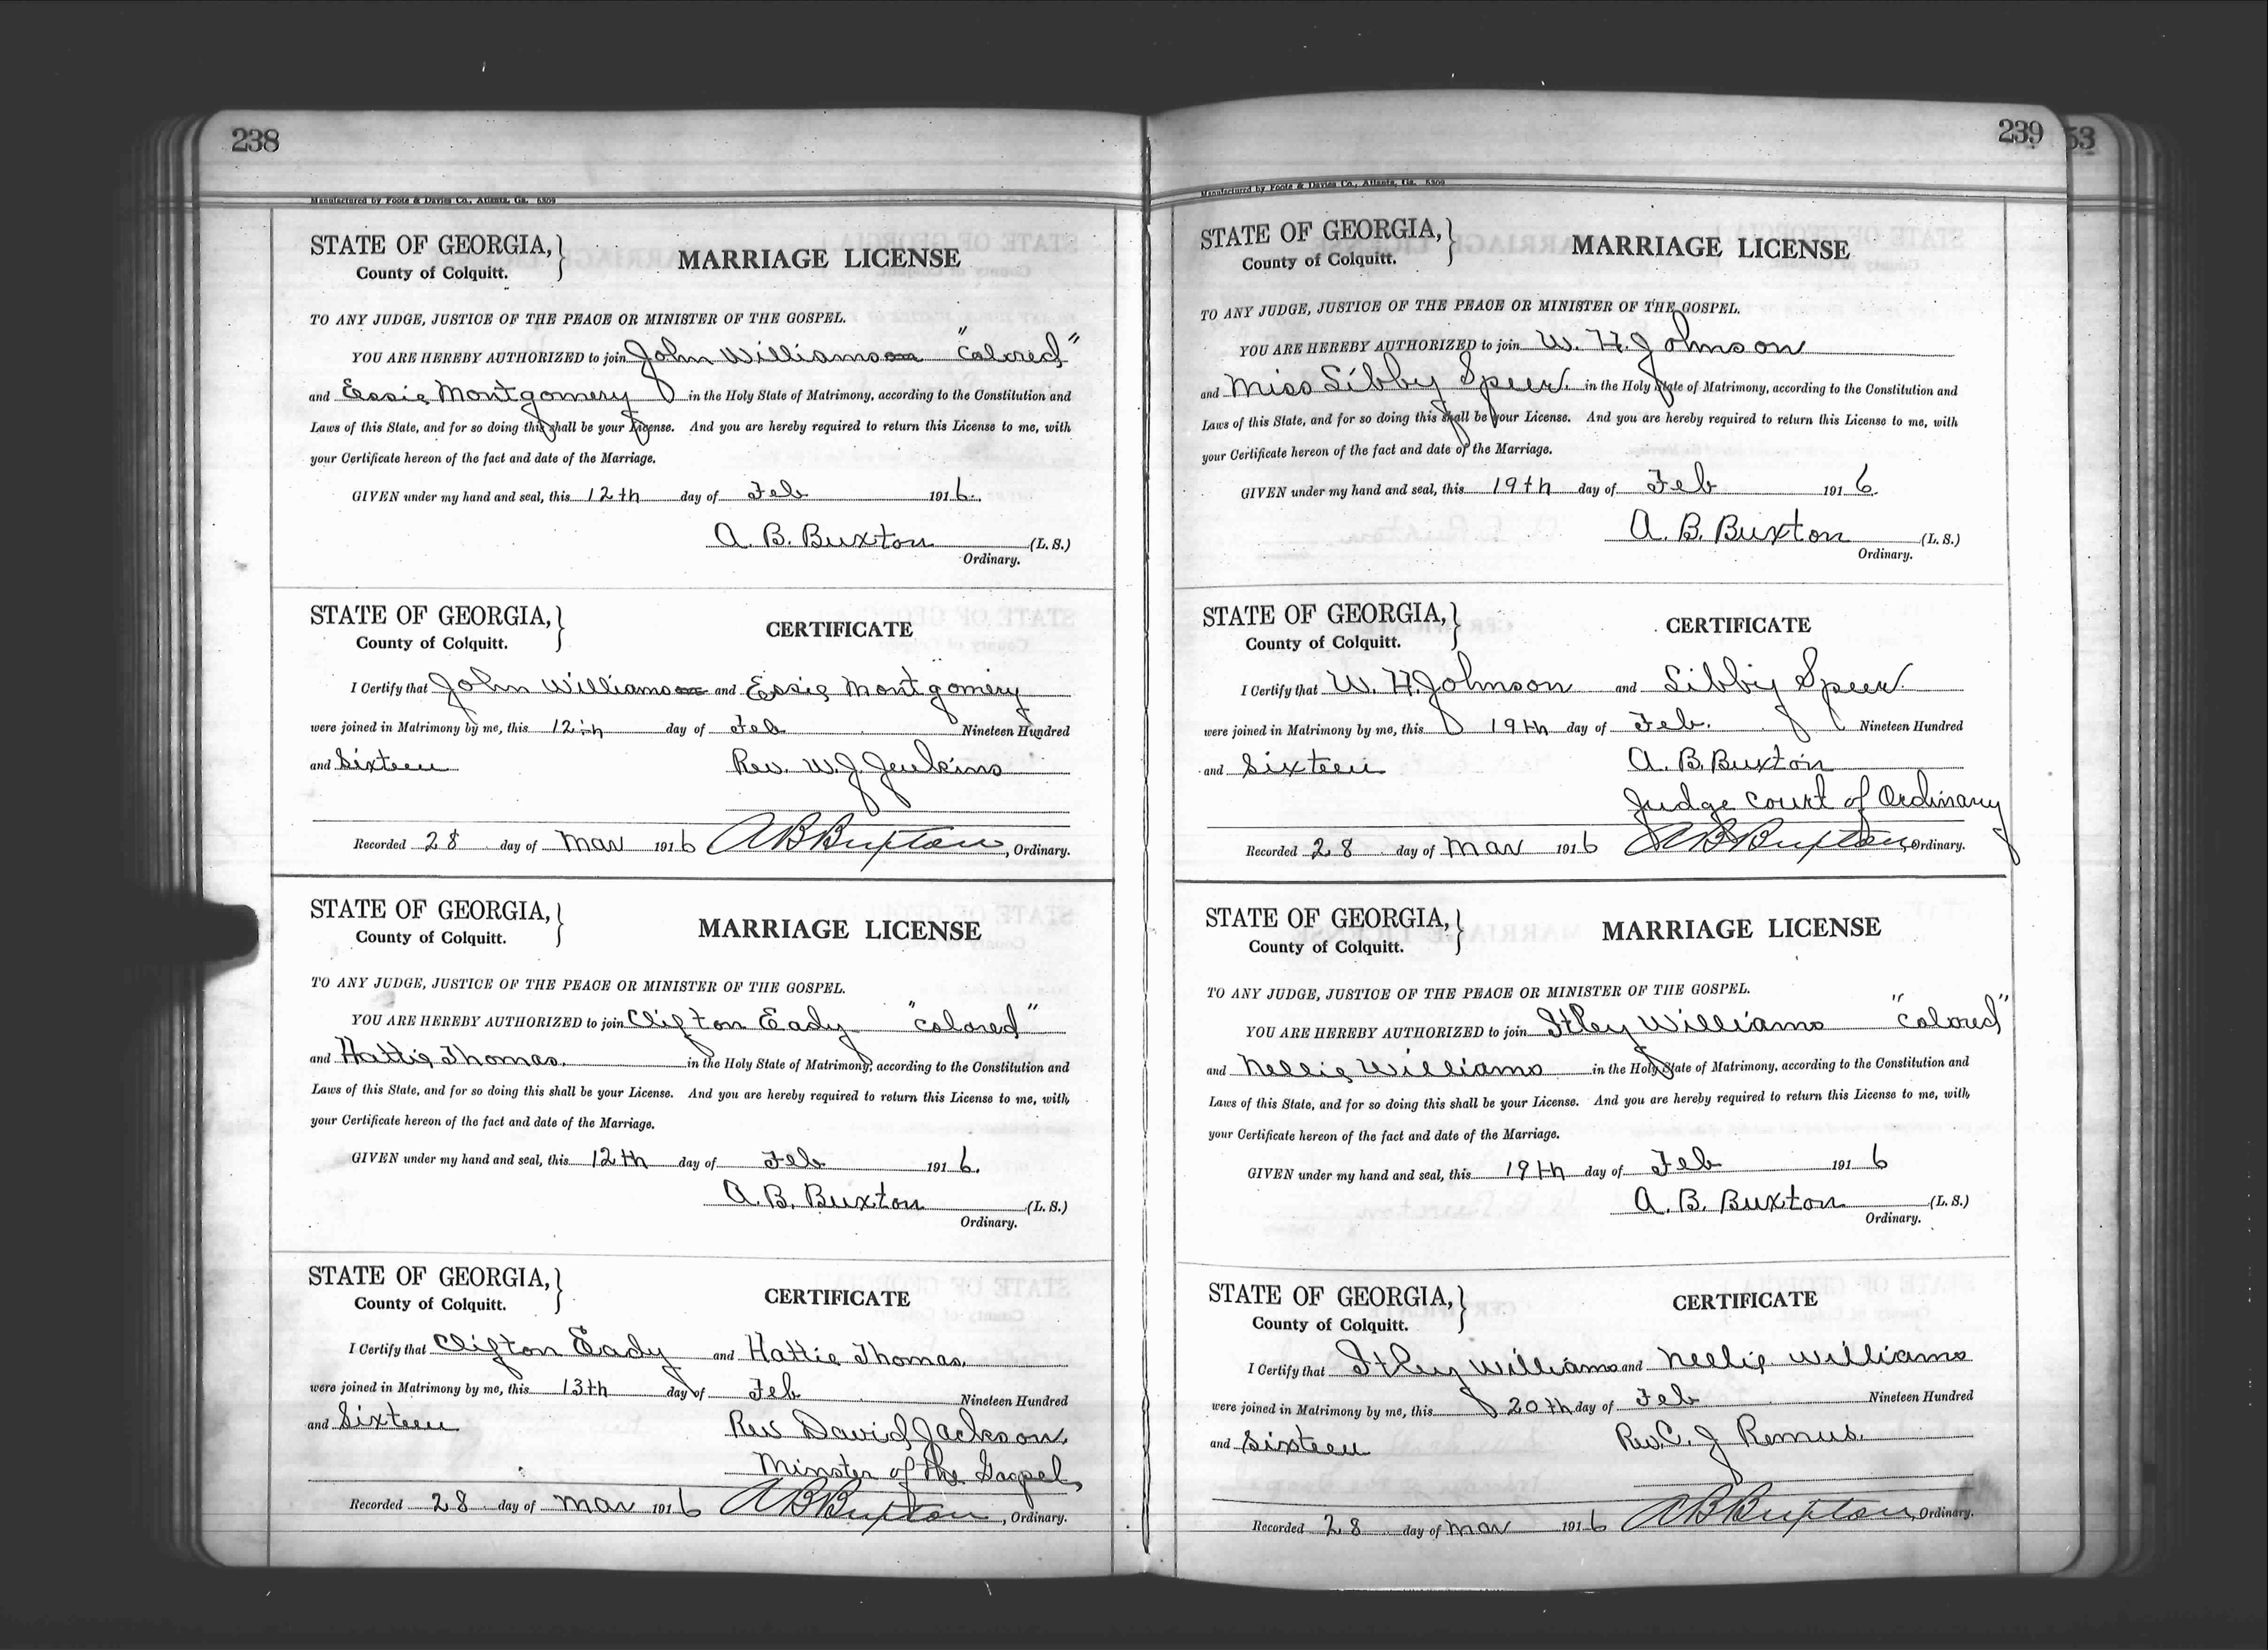 238
Manufactured by Foote & Davies Co., Atlanta, Ga. 5309
STATE OF GEORGIA,
County of Colquitt.
MARRIAGE LICENSE
TO ANY JUDGE, JUSTICE OF THE PEACE OR MINISTER OF THE GOSPEL.
YOU ARE HEREBY AUTHORIZED to join John Williams "colored"
and Essie Montgomery in the Holy State of Matrimony, according to the Constitution and
Laws of this State, and for so doing this shall be your License. And you are hereby required to return this License to me, with
your Certificate hereon of the fact and date of the Marriage.
GIVEN under my hand and seal, this 12th day of Feb 1916.
A. B. Buxton (L. S.)
Ordinary.
STATE OF GEORGIA,
County of Colquitt.
CERTIFICATE
I Certify that John Williams and Essie Montgomery
were joined in Matrimony by me, this 12th day of Feb Nineteen Hundred
and Sixteen Rev. W. J. Jenkins
Recorded 28 day of Mar 1916 A B Buxton, Ordinary.
STATE OF GEORGIA,
County of Colquitt.
MARRIAGE LICENSE
TO ANY JUDGE, JUSTICE OF THE PEACE OR MINISTER OF THE GOSPEL.
YOU ARE HEREBY AUTHORIZED to join Clifton Eady "colored"
and Hattie Thomas. in the Holy State of Matrimony, according to the Constitution and
Laws of this State, and for so doing this shall be your License. And you are hereby required to return this License to me, with
your Certificate hereon of the fact and date of the Marriage.
GIVEN under my hand and seal, this 12th day of Feb 1916.
A. B. Buxton (L. S.)
Ordinary.
STATE OF GEORGIA,
County of Colquitt.
CERTIFICATE
I Certify that Clifton Eady and Hattie Thomas.
were joined in Matrimony by me, this 13th day of Feb Nineteen Hundred
and Sixteen Rev David Jackson,
Minster of the Gospel,
Recorded 28 day of Mar 1916 A B Buxton, Ordinary.
239
53
Manufactured by Foote & Davies Co., Atlanta, Ga. 5309
STATE OF GEORGIA,
County of Colquitt.
MARRIAGE LICENSE
TO ANY JUDGE, JUSTICE OF THE PEACE OR MINISTER OF THE GOSPEL.
YOU ARE HEREBY AUTHORIZED to join W. H. Johnson
and Miss Sibby Speer. in the Holy State of Matrimony, according to the Constitution and
Laws of this State, and for so doing this shall be your License. And you are hereby required to return this License to me, with
your Certificate hereon of the fact and date of the Marriage.
GIVEN under my hand and seal, this 19th day of Feb 1916.
A. B. Buxton (L. S.)
Ordinary.
STATE OF GEORGIA,
County of Colquitt.
CERTIFICATE
I Certify that W. H. Johnson and Sibby Speer
were joined in Matrimony by me, this 19th day of Feb. Nineteen Hundred
and Sixteen A. B. Buxton
Judge Court of Ordinary
Recorded 28 day of Mar 1916 A B Buxton, Ordinary.
STATE OF GEORGIA,
County of Colquitt.
MARRIAGE LICENSE
TO ANY JUDGE, JUSTICE OF THE PEACE OR MINISTER OF THE GOSPEL.
YOU ARE HEREBY AUTHORIZED to join Ithey Williams "colored"
and Nellie Williams in the Holy State of Matrimony, according to the Constitution and
Laws of this State, and for so doing this shall be your License. And you are hereby required to return this License to me, with
your Certificate hereon of the fact and date of the Marriage.
GIVEN under my hand and seal, this 19th day of Feb 1916
A. B. Buxton (L. S.)
Ordinary.
STATE OF GEORGIA,
County of Colquitt.
CERTIFICATE
I Certify that Ithey Williams and Nellie Williams
were joined in Matrimony by me, this 20th day of Feb Nineteen Hundred
and Sixteen Rev. C. J Remus.
Recorded 28 day of Mar 1916 A B Buxton, Ordinary.